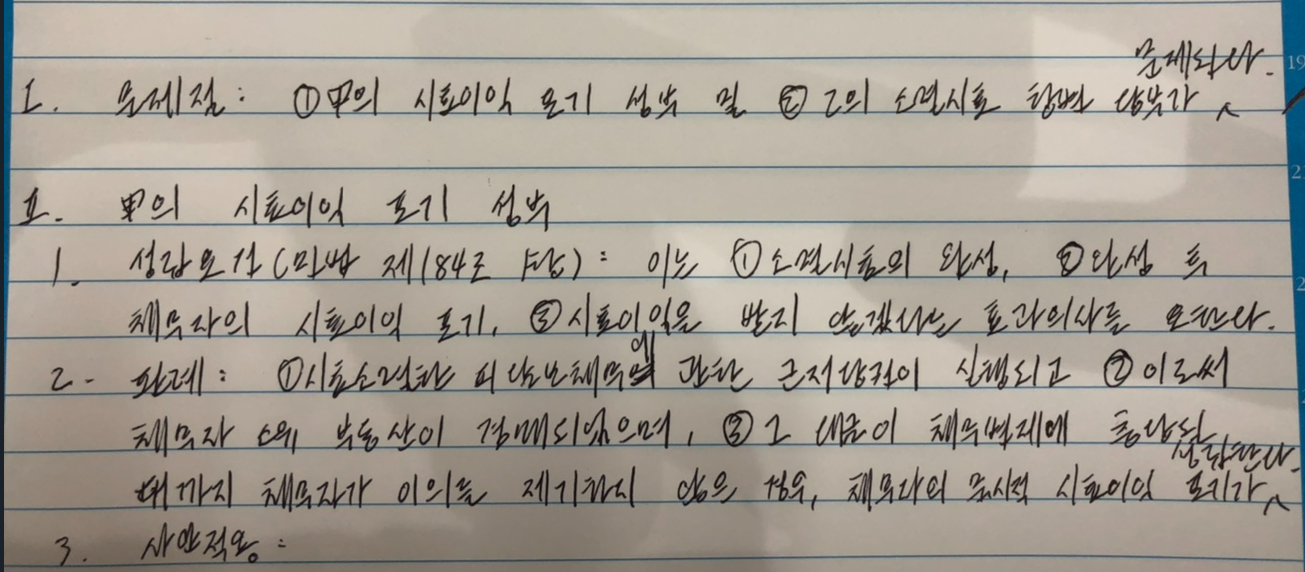 문제된다.
I. 문제점: ① 甲의 시효이익 포기 성부 및 ② 乙의 소멸시효 항변 당부가 ^
II. 甲의 시효이익 포기 성부
1. 성립요건(민법 제184조 1항): 이는 ① 소멸시효의 완성, ② 완성 후
채무자의 시효이익 포기, ③ 시효이익을 받지 않겠다는 효과의사를 요한다.
2- 판례: ① 시효소멸한 피담보채무에 관한 근저당권이 실행되고 ② 이로써
채무자 소유 부동산이 경매되었으며, ③ 그 대금이 채무변제에 충당될
성립한다.
때까지 채무자가 이의를 제기하지 않은 경우, 채무자의 묵시적 시효이익 포기가 ^
3. 사안적용:
19
2
2